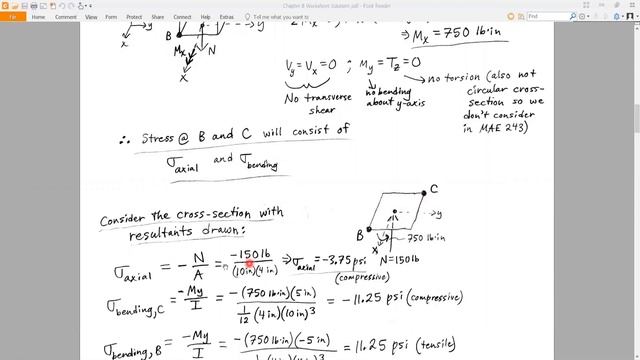 Chapter 8 Worksheet Solutions.pdf - Foxit Reader
Tell me what you want to do
Find
y
x
B
N
Mx
x
⇒ Mx = 750 lb·in
Vy = Vx = 0 ; My = Tz = 0
No transverse shear
no bending about y-axis
no torsion (also not
circular cross-
section so we
don't consider
in MAE 243)
∴ Stress @ B and C will consist of
σaxial and σbending
Consider the cross-section with
resultants drawn:
C
y
B
x
750 lb·in
N=150lb
σaxial = -N/A = -150lb/(10in)(4in) ⇒ σaxial = -3.75 psi
(compressive)
σbending,C = -My/I = -(750 lb·in)(5in)/1/12 (4in)(10in)³ = -11.25 psi (compressive)
σbending,B = -My/I = -(750 lb·in)(-5in) = 11.25 psi (tensile)